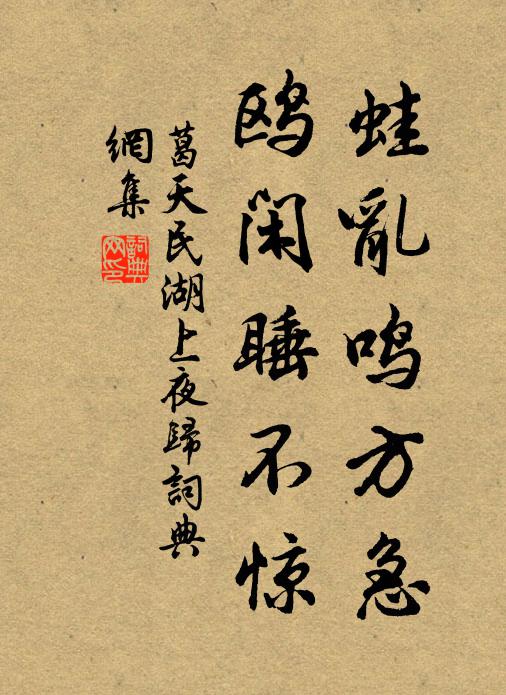 蛙亂鳴方急
鸥闲睡不惊
葛天民湖上夜歸詞典
網集
詞典網印